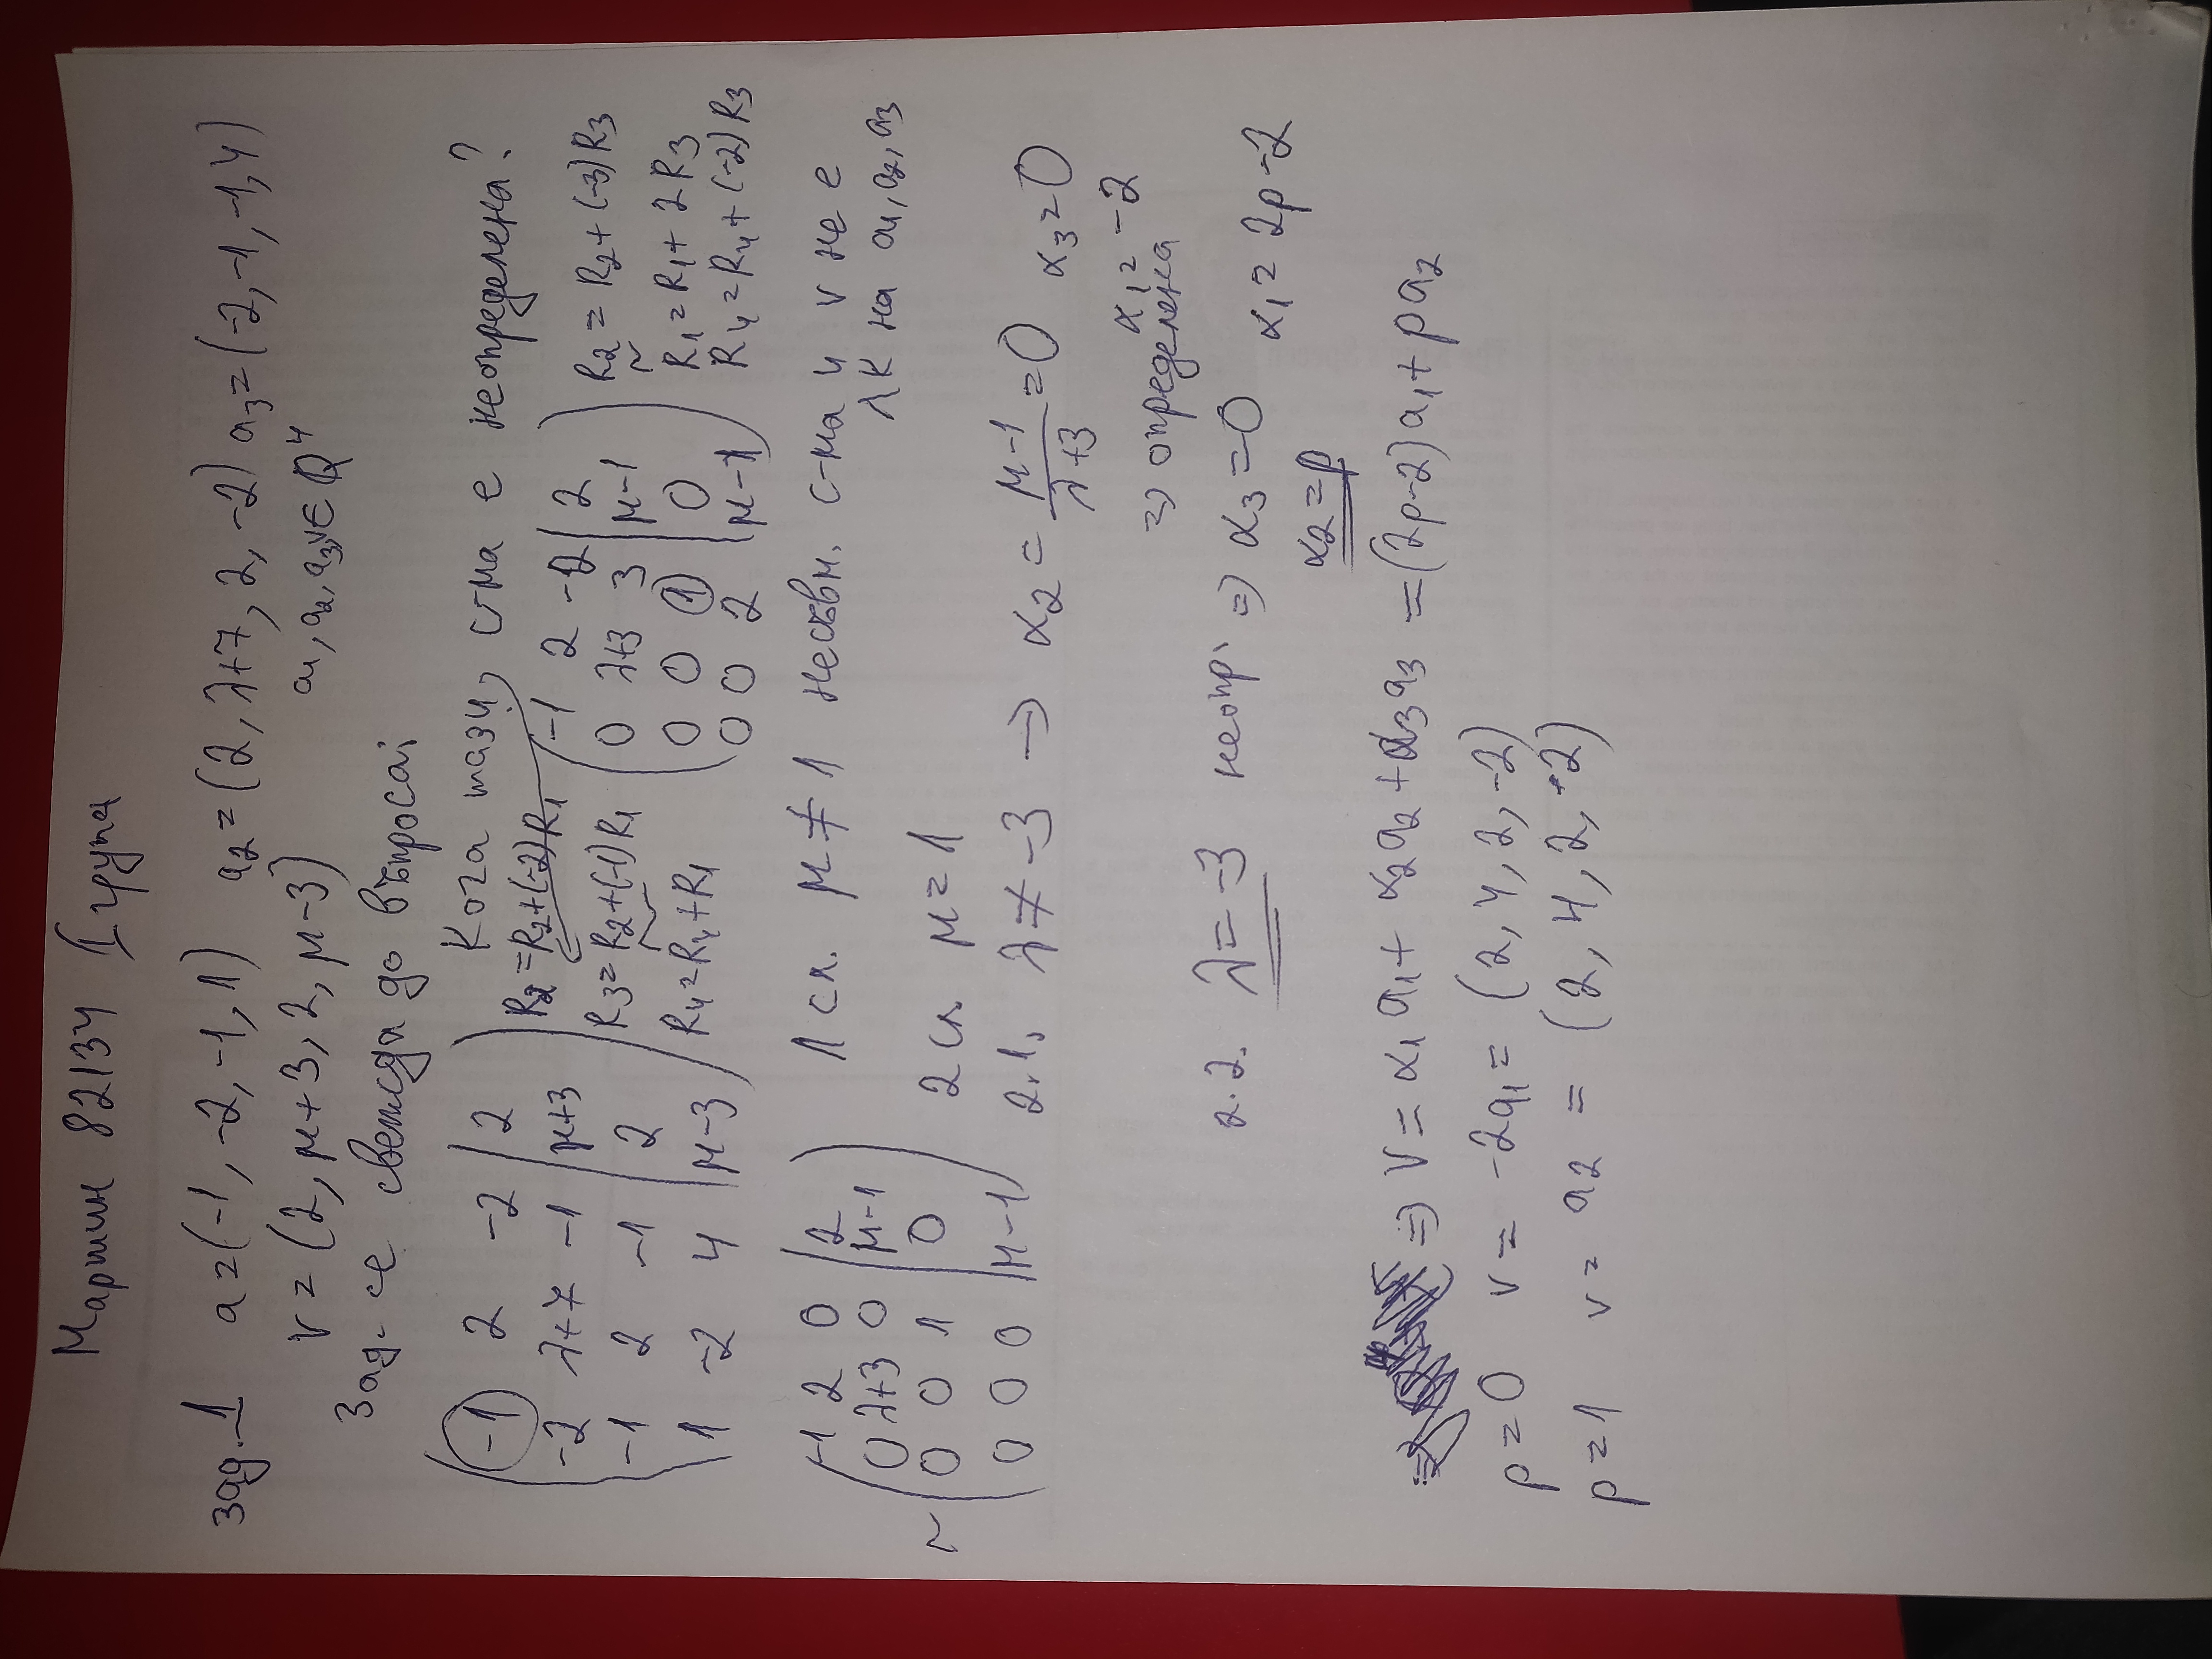 Мартин 82134 I група
зад. 1 a=(-1, -2, -1, 1) a2=(2, λ+7, 2, -2) a3=(-2,-1,-1,4)
v=(2, μ+3, 2, μ-3) a1, a2, a3, v∈ Q^4
Зад. се свежда до въпроса:
Кога тази с-ма е неопределена?
(-1 2 -2 | 2)
(-2 λ+7 -1 | μ+3)
(-1 2 -1 | 2)
(1 -2 4 | μ-3)
R2=R2+(-2)R1
R3=R2+(-1)R1
~
R4=R4+R1
(-1 2 -2 | 2)
(0 λ+3 3 | μ-1)
(0 0 1 | 0)
(0 0 2 | μ-1)
R2=R2+(-3)R3
~
R1=R1+2R3
R4=R4+(-2)R3
~
(-1 2 0 | 2)
(0 λ+3 0 | μ-1)
(0 0 1 | 0)
(0 0 0 | μ-1)
1 сл. μ≠1 несъвм. с-ма и v не е
ЛК на a1, a2, a3
2 сл. μ=1
2.1. λ≠-3 → α2=(μ-1)/(λ+3)=0 α3=0
α1=-2
=> определена
2.2. λ=-3 неопр. => α3=0 α1=2p-2
α2=p
=> v=α1a1+α2a2+α3a3=(2p-2)a1+pa2
p=0 v=-2a1=(2, 4, 2, -2)
p=1 v=a2=(2, 4, 2, -2)